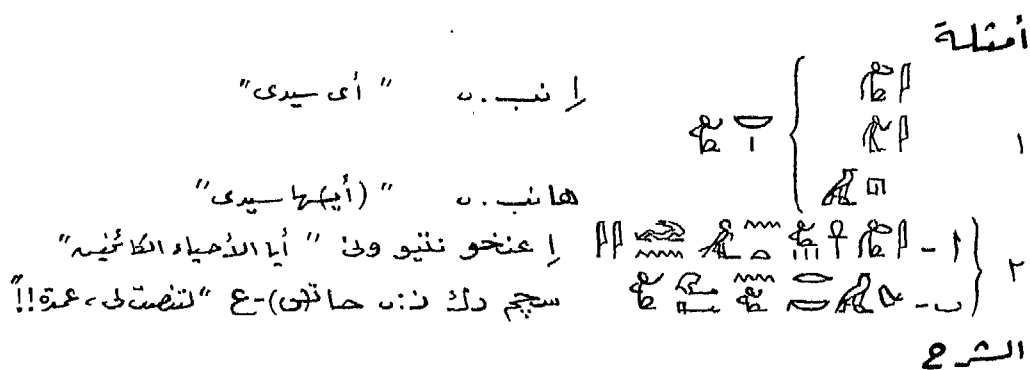 أمثلة
إ نب.ى " أى سيدى"
١
ها نب.ى " (أي)ها سيدى"
٢ أ - إ عنخو نتيو ونى " أيا الأحياء الكائنين"
ب - سچم رك ن:ى حاتى(ى)-ع "لتنصت لى، عمدة!!"
الشرح